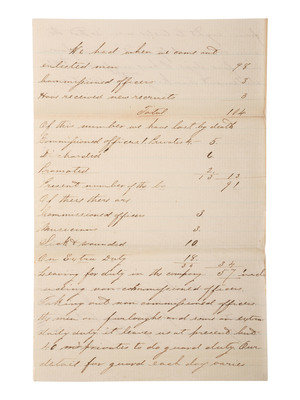 We had when we came out
enlisted men 98
Commissioned officers 3
Have received new recruits 3
Total 104
Of this number we have lost by death
Commissioned officers 1 Privates 4 5
Discharded 6
Promoted 2
13 13
Present number of the Co 91
Of theers there are
Commissioned officers 3
Musicians 3
Sick & wounded 10
On Extra Duty 18
34 34
Leaving for duty in the company 57 
making non commissioned officers
Taking out non commissioned officers
men on furlought and some on extra
daily duty it leaves us at present but
46 privates to do guard duty Our
detail for guard each day varies